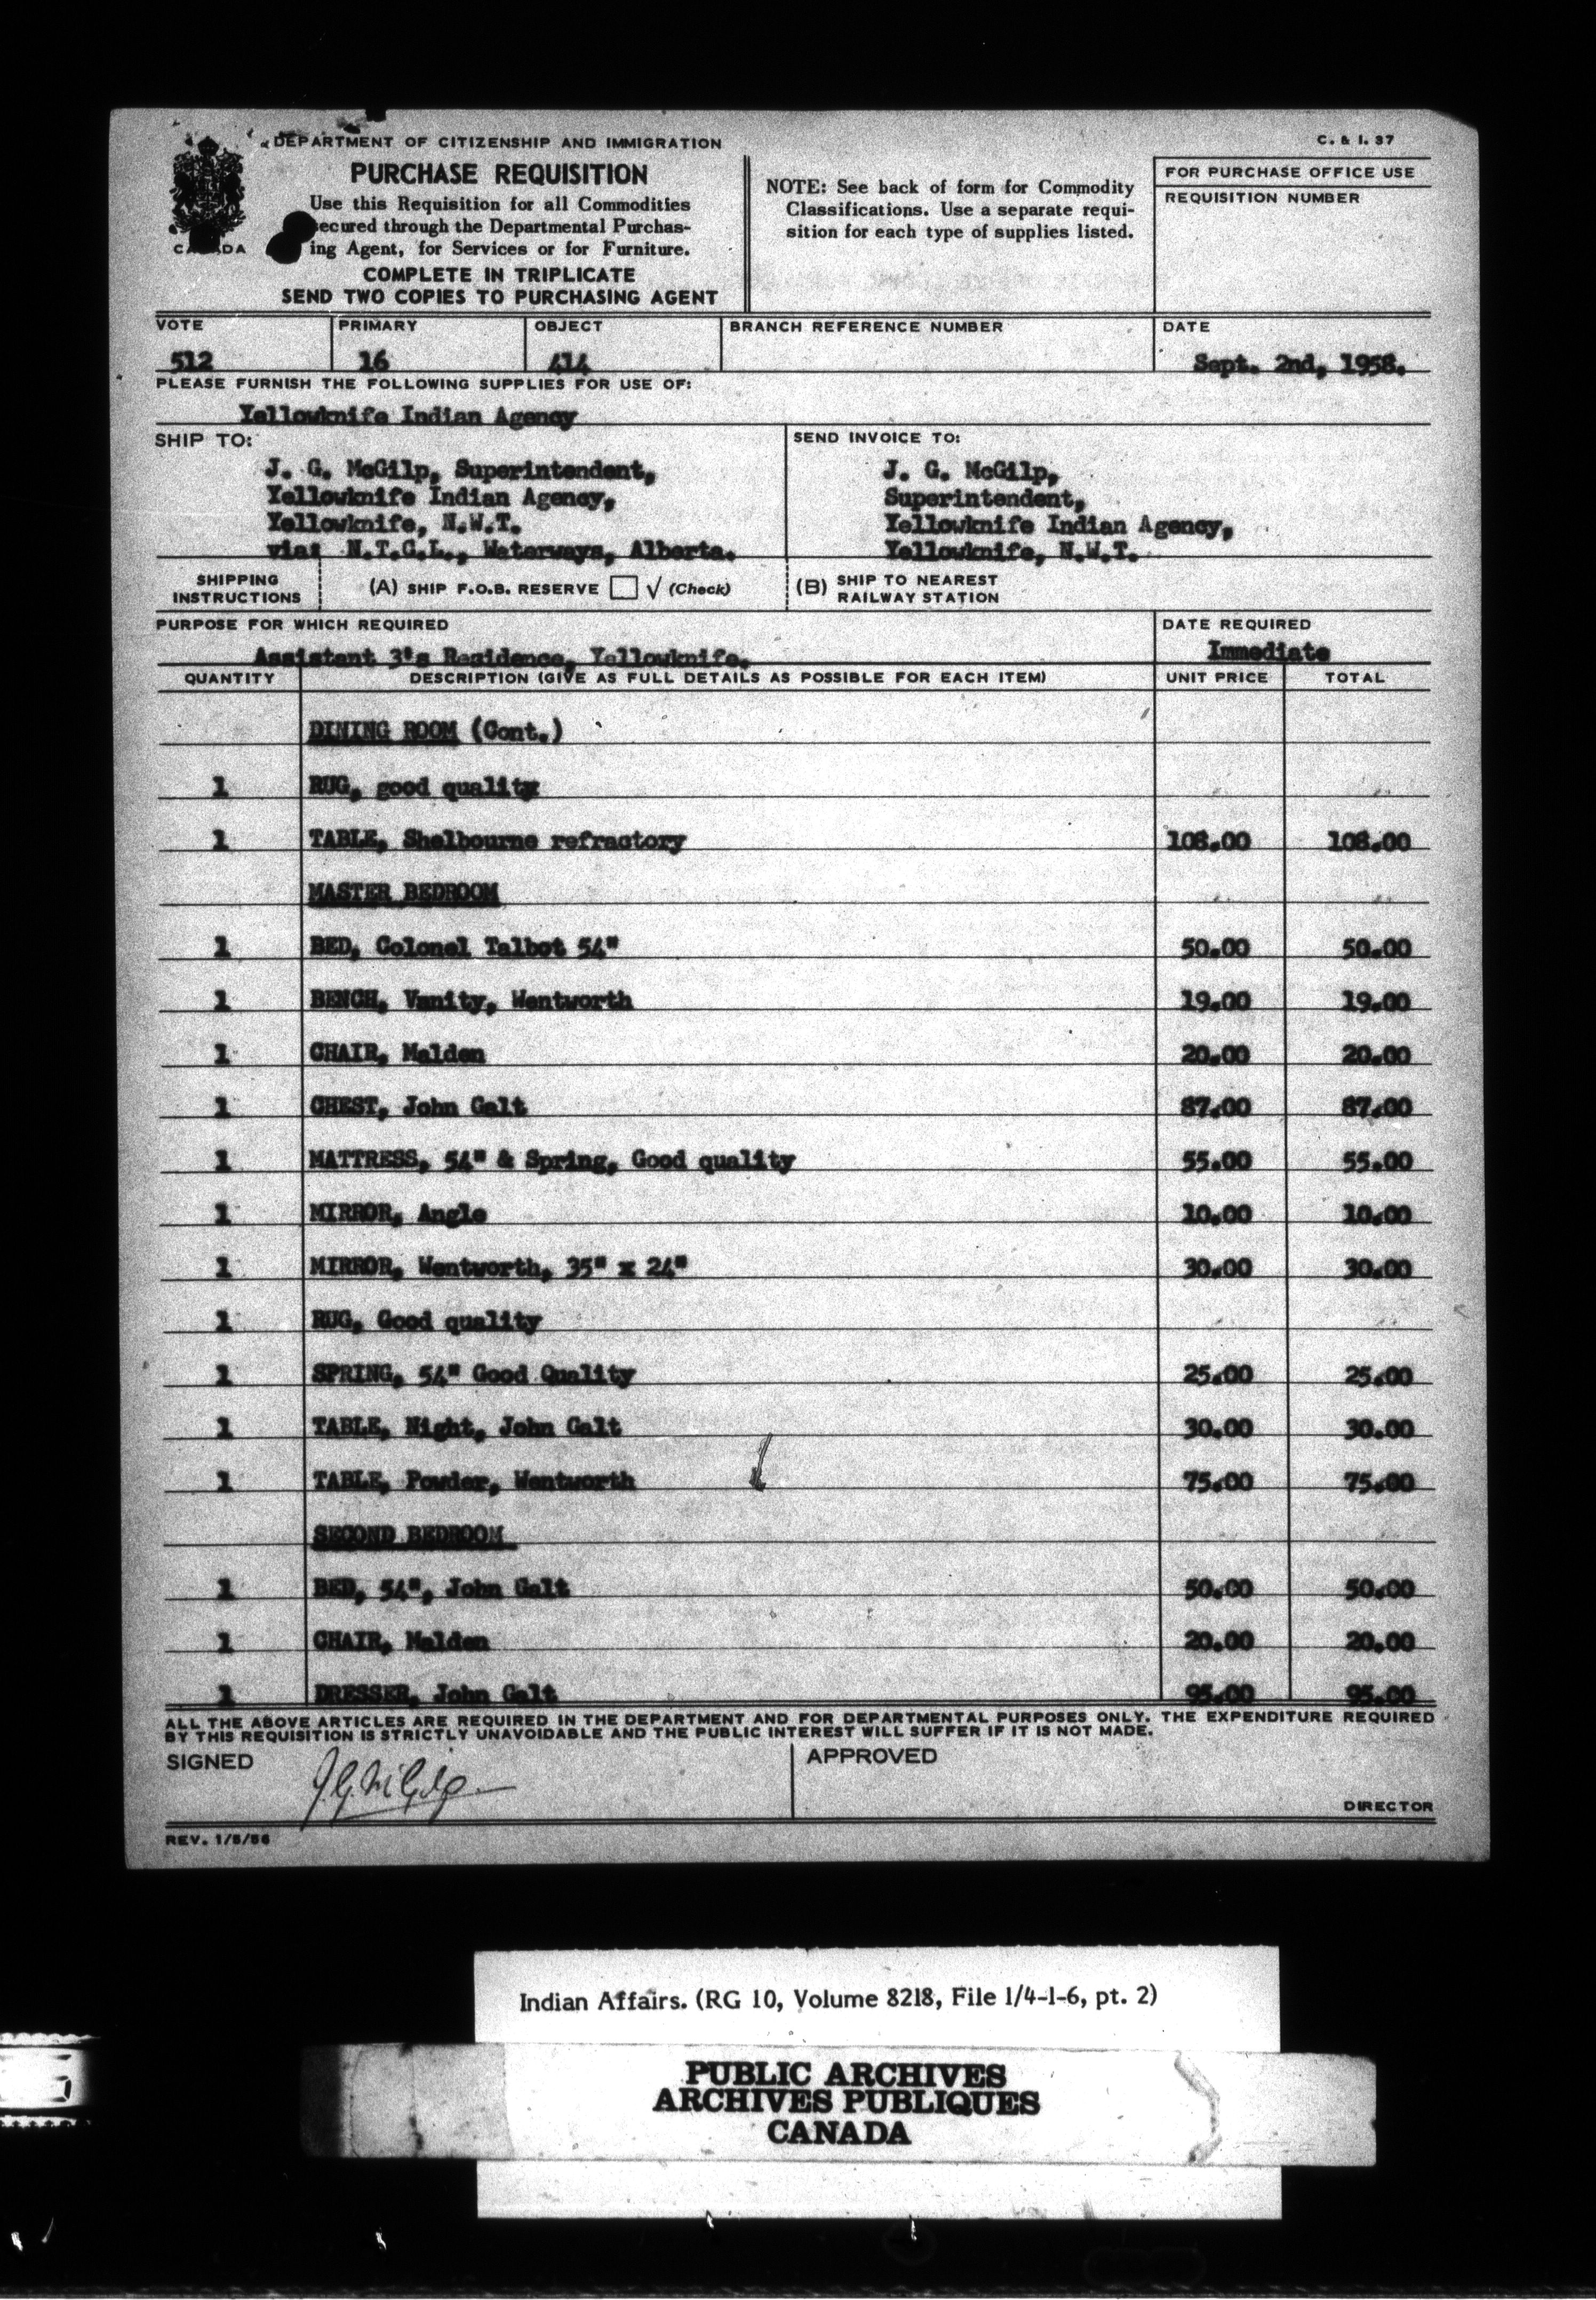 DEPARTMENT OF CITIZENSHIP AND IMMIGRATION
C. & I. 37
PURCHASE REQUISITION
Use this Requisition for all Commodities
secured through the Departmental Purchas-
ing Agent, for Services or for Furniture.
COMPLETE IN TRIPLICATE
SEND TWO COPIES TO PURCHASING AGENT
CANADA
NOTE: See back of form for Commodity
Classifications. Use a separate requi-
sition for each type of supplies listed.
FOR PURCHASE OFFICE USE
REQUISITION NUMBER
VOTE PRIMARY OBJECT BRANCH REFERENCE NUMBER DATE
512 16 414 Sept. 2nd, 1958.
PLEASE FURNISH THE FOLLOWING SUPPLIES FOR USE OF:
Yellowknife Indian Agency
SHIP TO:
J. G. McGilp, Superintendent,
Yellowknife Indian Agency,
Yellowknife, N.W.T.
via: N.T.C.L., Waterways, Alberta.
SEND INVOICE TO:
J. G. McGilp,
Superintendent,
Yellowknife Indian Agency,
Yellowknife, N.W.T.
SHIPPING
INSTRUCTIONS
(A) SHIP F.O.B. RESERVE √ (Check)
(B) SHIP TO NEAREST
RAILWAY STATION
PURPOSE FOR WHICH REQUIRED DATE REQUIRED
Assistant 3's Residence, Yellowknife. Immediate
QUANTITY DESCRIPTION (GIVE AS FULL DETAILS AS POSSIBLE FOR EACH ITEM) UNIT PRICE TOTAL
DINING ROOM (Cont.)
1 RUG, good quality
1 TABLE, Shelbourne refractory 108.00 108.00
MASTER BEDROOM
1 BED, Colonel Talbot 54" 50.00 50.00
1 BENCH, Vanity, Wentworth 19.00 19.00
1 CHAIR, Malden 20.00 20.00
1 CHEST, John Galt 87.00 87.00
1 MATTRESS, 54" & Spring, Good quality 55.00 55.00
1 MIRROR, Angle 10.00 10.00
1 MIRROR, Wentworth, 35" x 24" 30.00 30.00
1 RUG, Good quality
1 SPRING, 54" Good Quality 25.00 25.00
1 TABLE, Night, John Galt 30.00 30.00
1 TABLE, Powder, Wentworth 75.00 75.00
SECOND BEDROOM
1 BED, 54", John Galt 50.00 50.00
1 CHAIR, Malden 20.00 20.00
1 DRESSER, John Galt 95.00 95.00
ALL THE ABOVE ARTICLES ARE REQUIRED IN THE DEPARTMENT AND FOR DEPARTMENTAL PURPOSES ONLY. THE EXPENDITURE REQUIRED
BY THIS REQUISITION IS STRICTLY UNAVOIDABLE AND THE PUBLIC INTEREST WILL SUFFER IF IT IS NOT MADE.
SIGNED J. G. McGilp APPROVED
DIRECTOR
REV. 1/5/56
Indian Affairs. (RG 10, Volume 8218, File 1/4-1-6, pt. 2)
PUBLIC ARCHIVES
ARCHIVES PUBLIQUES
CANADA